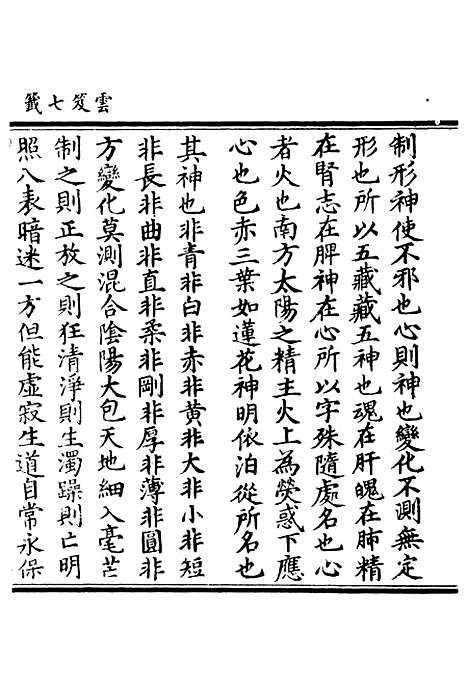 雲笈七籤
制形神使不邪也心則神也變化不測無定
形也所以五藏藏五神也魂在肝魄在肺精
在腎志在脾神在心所以字殊隨處名也心
者火也南方太陽之精主火上為熒惑下應
心也色赤三葉如蓮花神明依泊從所名也
其神也非青非白非赤非黃非大非小非短
非長非曲非直非柔非剛非厚非薄非圓非
方變化莫測混合陰陽大包天地細入毫芒
制之則正放之則狂清淨則生濁躁則亡明
照八表暗迷一方但能虛寂生道自常永保